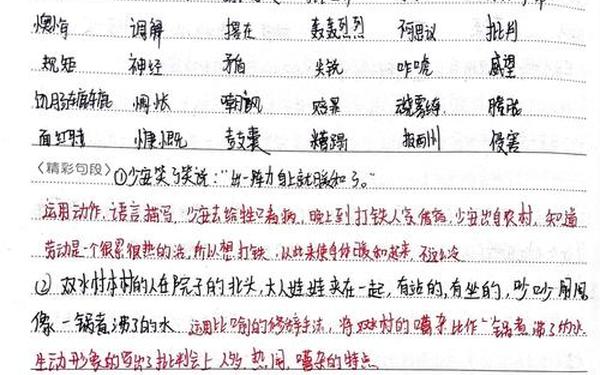 懊悔 调解 撂在 轰轰烈烈 阿思议 批判
规矩 神经 矛盾 尖锐 咋唬 威望
惆怅
慷慨 鼓囊 糟蹋 侵害
〈精彩句段〉①少安笑了笑说:"出一阵力身上就暖和了。"
运用动作、语言描写,少安去给牲口看病,晚上到打铁人家借宿,少安出自农村,知道
劳动是个很累很热的活,所以想打铁,以此来使身体暖和起来,不这么冷
② 双水村本村的人在院子的北头,大人娃娃夹在一起,有站的,有坐的,吵吵闹闹
像一锅煮沸了的水 运用比喻的修辞手法,将双水村的嘈杂比作"一锅煮沸了的水
生动形象的写出了批判会上人多、热闹、嘈杂的特点